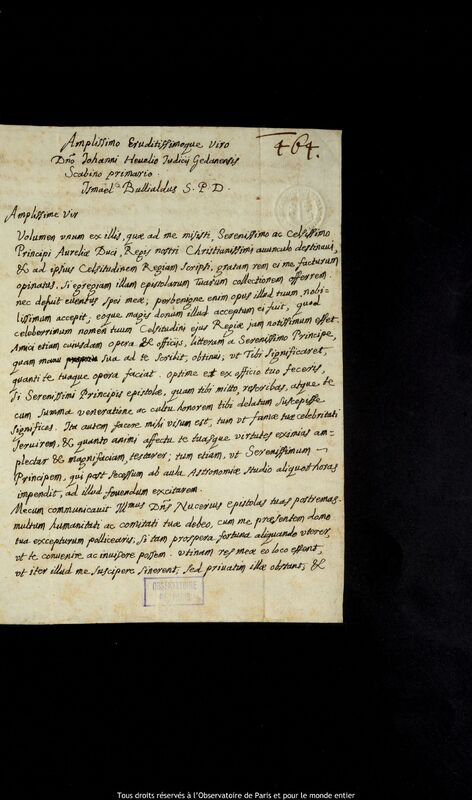 464.
Amplissimo Eruditissimoque Viro
Dno Johanni Heuelio Iudicij Gedanensis
Scabino primario.
Ismael Bullialdus S. P. D.
Amplissime Vir
Volumen vnum ex illis, quæ ad me misisti, Serenissimo ac Celsissimo
Principi Aureliæ Duci, Regis nostri Christianissimi auunculo destinaui,
& ad ipsius Celsitudinem Regiam scripsi, gratam rem ei me facturum
opinatus, si egregiam illam epistolarum tuarum collectionem offerrem.
nec defuit euentus spei meæ; perbenigne enim opus illud tuum nobi-
lissimum accepit; eoque magis donum illud acceptum ei fuit, quod
celeberrimum nomen tuum Celsitudini ejus Regiæ jam notissimum esset.
Amici etiam cuiusdam opera & officijs, litteram a Serenissimo Principe,
quam manu sua ad te scribit, obtinui, vt Tibi significaret,
quanti te tuaque opera faciat. optime ex officio tuo feceris,
si Serenissimi Principis epistolæ, quam tibi mitto, rescribas, atque te
cum summa veneratione ac cultu honorem tibi delatum suscepisse
significes. Ita autem facere mihi visum est, tum vt famæ tuæ celebritati
seruirem, & quanto animi affectu te tuasque virtutes eximias am-
plectar & magnifaciam testarer; tum etiam, vt Serenissimum
Principem, qui post secessum ab aula Astronomiæ studio aliquot horas
impendit, ad illud fouendum excitarem.
Mecum communicauit Illmus Dns Nucerius epistolas tuas postremas.
multum humanitati ac comitati tuæ debeo, cum me præsentem domo
tua excepturum pollicearis, si tam prospera fortuna aliquando vterer,
vt te conuenire ac inuisere possem. vtinam res meæ eo loco essent,
vt iter illud me suscipere sinerent, sed priuatim illæ obstant, &
OBSERVATOIRE
Tous droits réservés à l'Observatoire de Paris et pour le monde entier